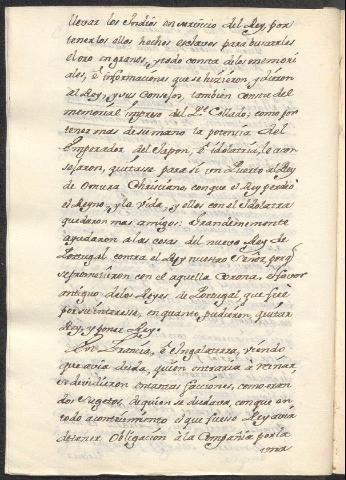 llevar los Indios en servicio del Rey, por
tenerlos ellos hechos esclavos para buscarles
el oro en granos, y todo consta de los memori
ales, è informaciones que se hizieron, y dieron
al Rey, y sus Consejos, tambien consta del
memorial impreso del Pe Collado; como por
tener mas de su mano la potencia del
Emperador del Japon, è idolatria, le acon
sejaron, quitasse para sì un Puerto al Rey
de Omura Christiano, con que el Rey perdiò
el Reyno, y la vida, y ellos con el Idolatra
quedaron mas amigos: Grandemente
ayudaron a las cosas del nuevo Rey de
Portugal contra el Rey nuestro Señor, porq
se prometieron con el aquella Corona, el favor
antiguo de los Reyes de Portugal, que fuè
por su interesse, en quanto pudieron, quitar
Rey, y poner Rey.
En Francia, è Ingalaterra, viendo
que avia duda, quien entraria à reinar,
se dividieron en tantas facciones, como eran
los sugetos, de quien se dudava, con que en
todo acontecimiento el que fuesse Rey avia
de tener obligacion à la Compañia por la
una